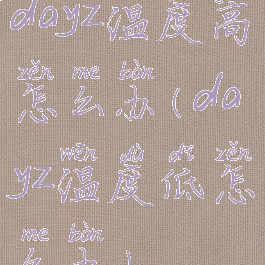 dayz温度高
zěn me bàn
怎么办(da
wēn dù dī zěn
yz温度低怎
me bàn
么办)